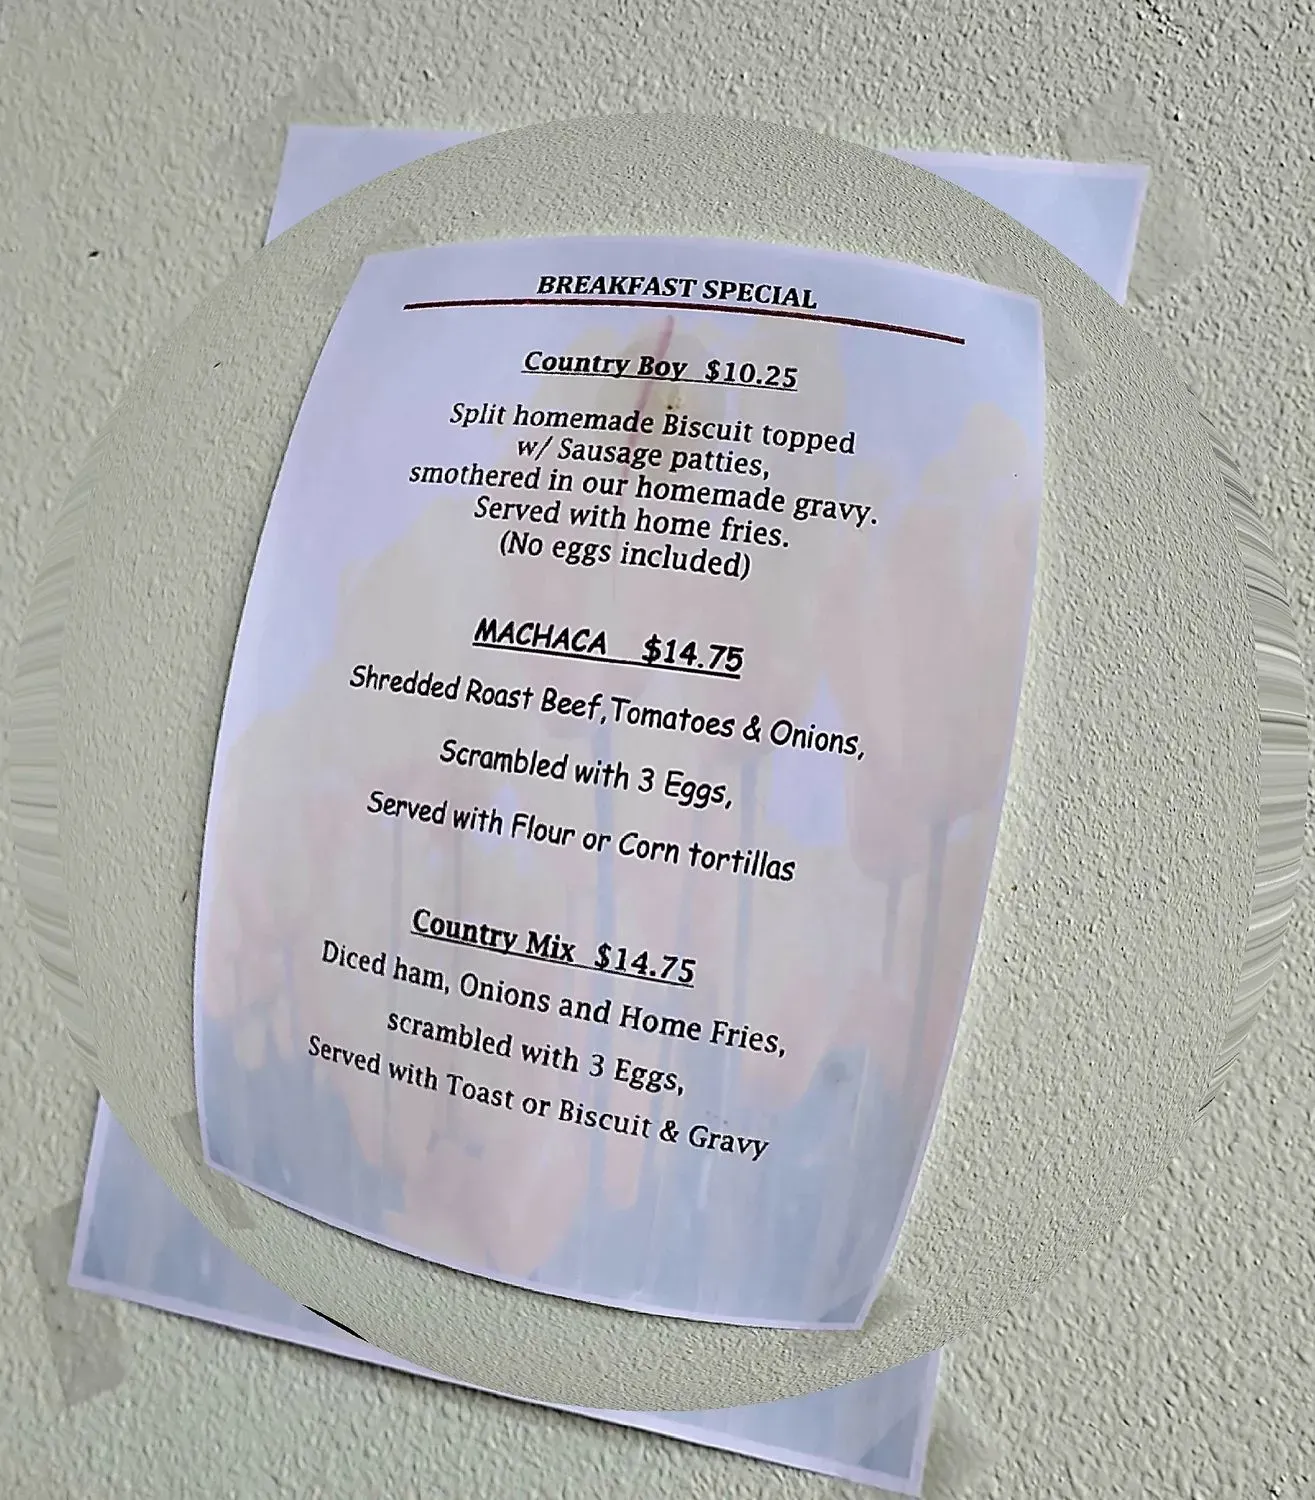 BREAKFAST SPECIAL
Country Boy $10.25
Split homemade Biscuit topped
w/ Sausage patties,
smothered in our homemade gravy.
Served with home fries.
(No eggs included)
MACHACA $14.75
Shredded Roast Beef,Tomatoes & Onions,
Scrambled with 3 Eggs,
Served with Flour or Corn tortillas
Country Mix $14.75
Diced ham, Onions and Home Fries,
scrambled with 3 Eggs,
Served with Toast or Biscuit & Gravy